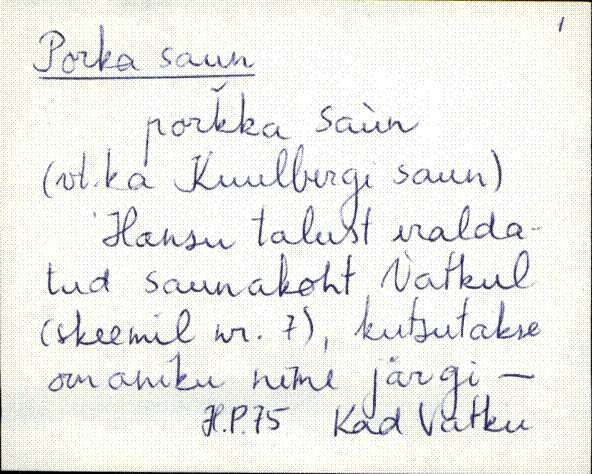 1
Porka saun
porkka saùn
(vt. ka Kuulbergi saun)
Hansu talust eralda-
tud saunakoht Vatkul
(skeemil nr. 7), kutsutakse
omaniku nime järgi —
H.P.75 Kad Vatku